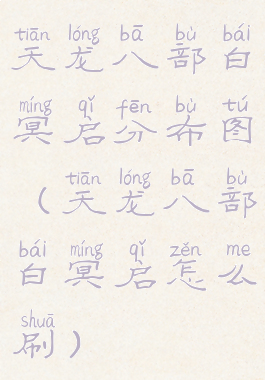 tiān lóng bā bù bái
天龙八部白
míng qǐ fēn bù tú
冥启分布图
tiān lóng bā bù
（天龙八部
bái míng qǐ zěn me
白冥启怎么
shuā
刷）